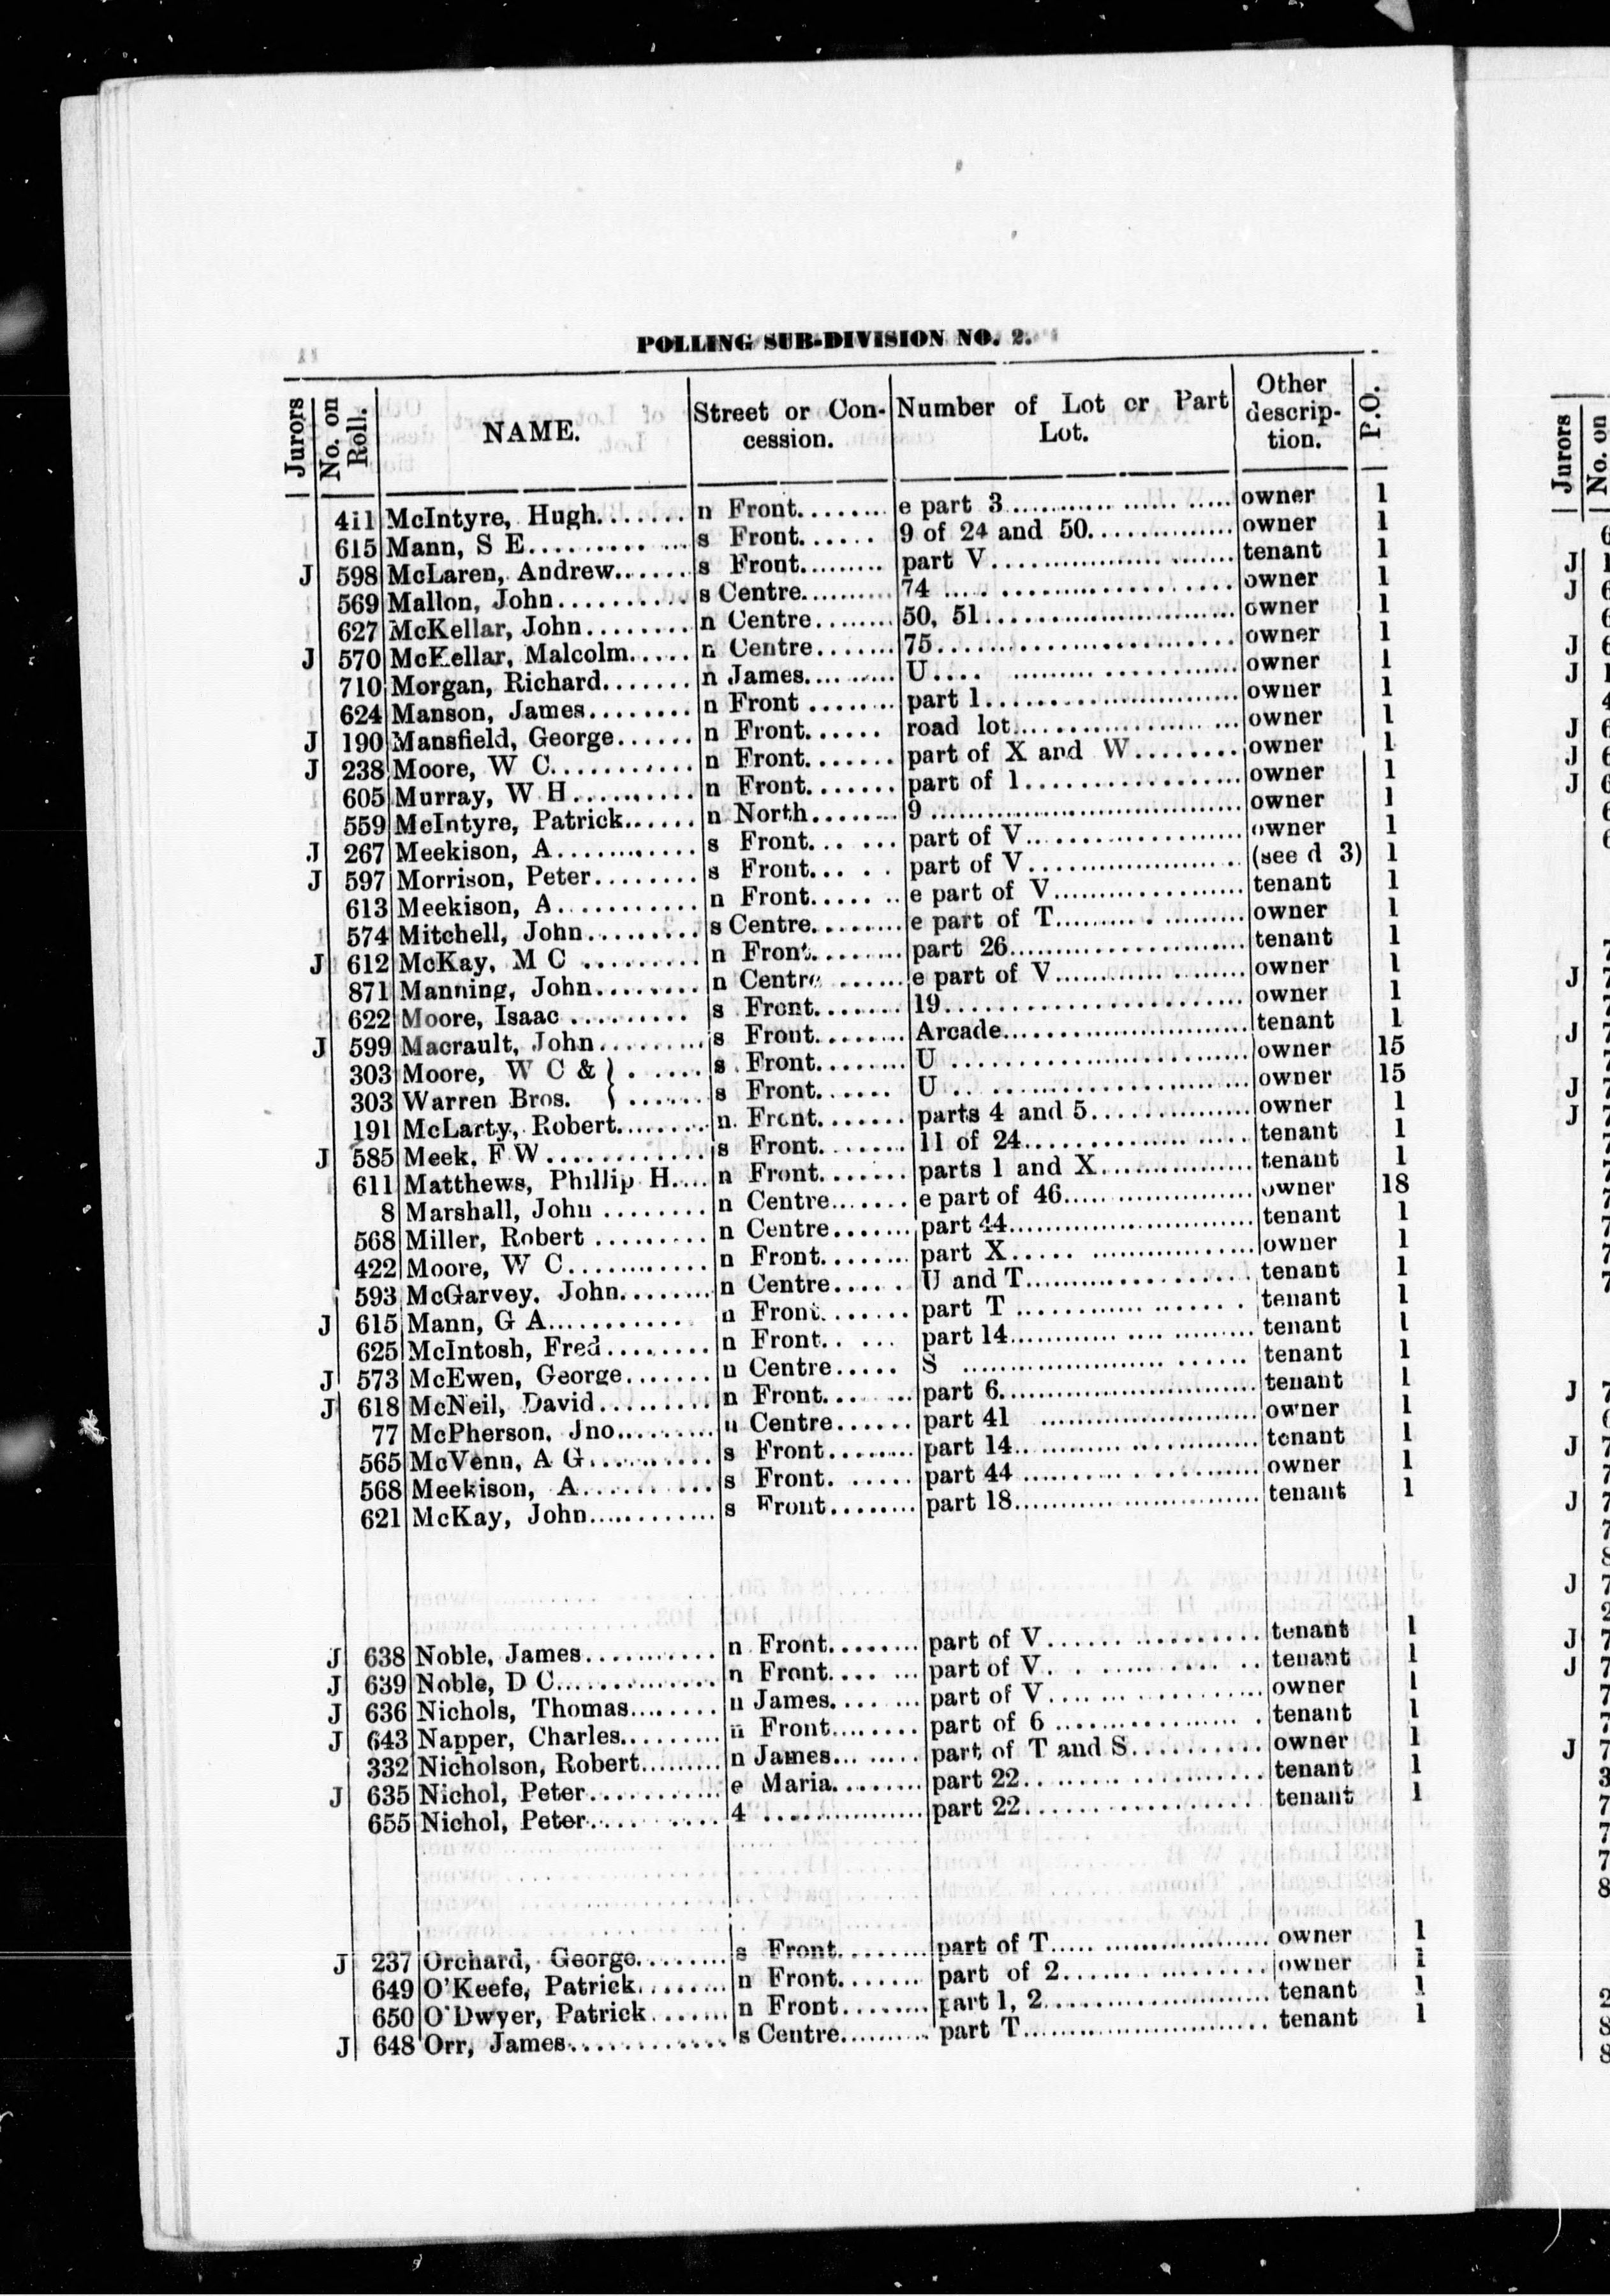 POLLING SUB-DIVISION NO. 2.
Jurors No. on Roll. NAME. Street or Concession. Number of Lot or Part Lot. Other description. P.O.
411 McIntyre, Hugh....... n Front........ e part 3.................. owner 1
615 Mann, S E............ s Front...... 9 of 24 and 50............... owner 1
J 598 McLaren, Andrew...... s Front......... part V.................. tenant 1
569 Mallon, John.......... s Centre.......... 74 .................. owner 1
627 McKellar, John........ n Centre........ 50, 51.................. owner 1
J 570 McKellar, Malcolm..... n Centre....... 75.................. owner 1
710 Morgan, Richard....... n James.......... U.................. owner 1
624 Manson, James........ n Front ....... part 1.................. owner 1
J 190 Mansfield, George...... n Front...... road lot.................. owner 1
J 238 Moore, W C........... n Front....... part of X and W........ owner 1
605 Murray, W H.......... n Front....... part of 1.................. owner 1
559 McIntyre, Patrick...... n North........ 9 .................. owner 1
J 267 Meekison, A........... s Front... ... part of V.................. owner 1
J 597 Morrison, Peter........ s Front... .. part of V.................. (see d 3) 1
613 Meekison, A........... n Front....... e part of V.................. tenant 1
574 Mitchell, John......... s Centre........ e part of T.................. owner 1
J 612 McKay, M C ......... n Front........ part 26.................. tenant 1
871 Manning, John........ n Centre ...... e part of V.................. owner 1
622 Moore, Isaac ......... s Front....... 19.................. owner 1
J 599 Macrault, John......... s Front........ Arcade.................. tenant 1
303 Moore, W C & } ..... s Front........ U .................. owner 15
303 Warren Bros. } ....... s Front...... U .................. owner 15
191 McLarty, Robert........ n Front....... parts 4 and 5............ owner 1
J 585 Meek, F W............ s Front........ 11 of 24.................. tenant 1
611 Matthews, Phillip H.... n Front....... parts 1 and X............ tenant 1
8 Marshall, John ........ n Centre....... e part of 46.................. owner 18
568 Miller, Robert ......... n Centre....... part 44.................. tenant 1
422 Moore, W C........... n Front........ part X.................. owner 1
593 McGarvey, John........ n Centre..... U and T.................. tenant 1
J 615 Mann, G A............ n Front....... part T .................. tenant 1
625 McIntosh, Fred........ n Front.. ... part 14.................. tenant 1
J 573 McEwen, George....... n Centre..... S .................. tenant 1
J 618 McNeil, David......... n Front........ part 6.................. tenant 1
77 McPherson, Jno......... n Centre...... part 41 .................. owner 1
565 McVenn, A G.......... s Front........ part 14.................. tenant 1
568 Meekison, A........... s Front. ...... part 44 .................. owner 1
621 McKay, John........... s Front........ part 18.................. tenant 1
J 638 Noble, James........... n Front........ part of V.................. tenant 1
J 639 Noble, D C.............. n Front.... ... part of V.................. tenant 1
J 636 Nichols, Thomas........ n James........ part of V.................. owner 1
J 643 Napper, Charles......... n Front........ part of 6 .................. tenant 1
332 Nicholson, Robert........ n James... ..... part of T and S.......... owner 1
J 635 Nichol, Peter........... e Maria......... part 22.................. tenant 1
655 Nichol, Peter........... 4 ............... part 22.................. tenant 1
J 237 Orchard, George........ s Front......... part of T.................. owner 1
649 O'Keefe, Patrick........ n Front........ part of 2.................. owner 1
650 O'Dwyer, Patrick....... n Front......... part 1, 2.................. tenant 1
J 648 Orr, James............. s Centre.......... part T.................. tenant 1
Jurors
No. on